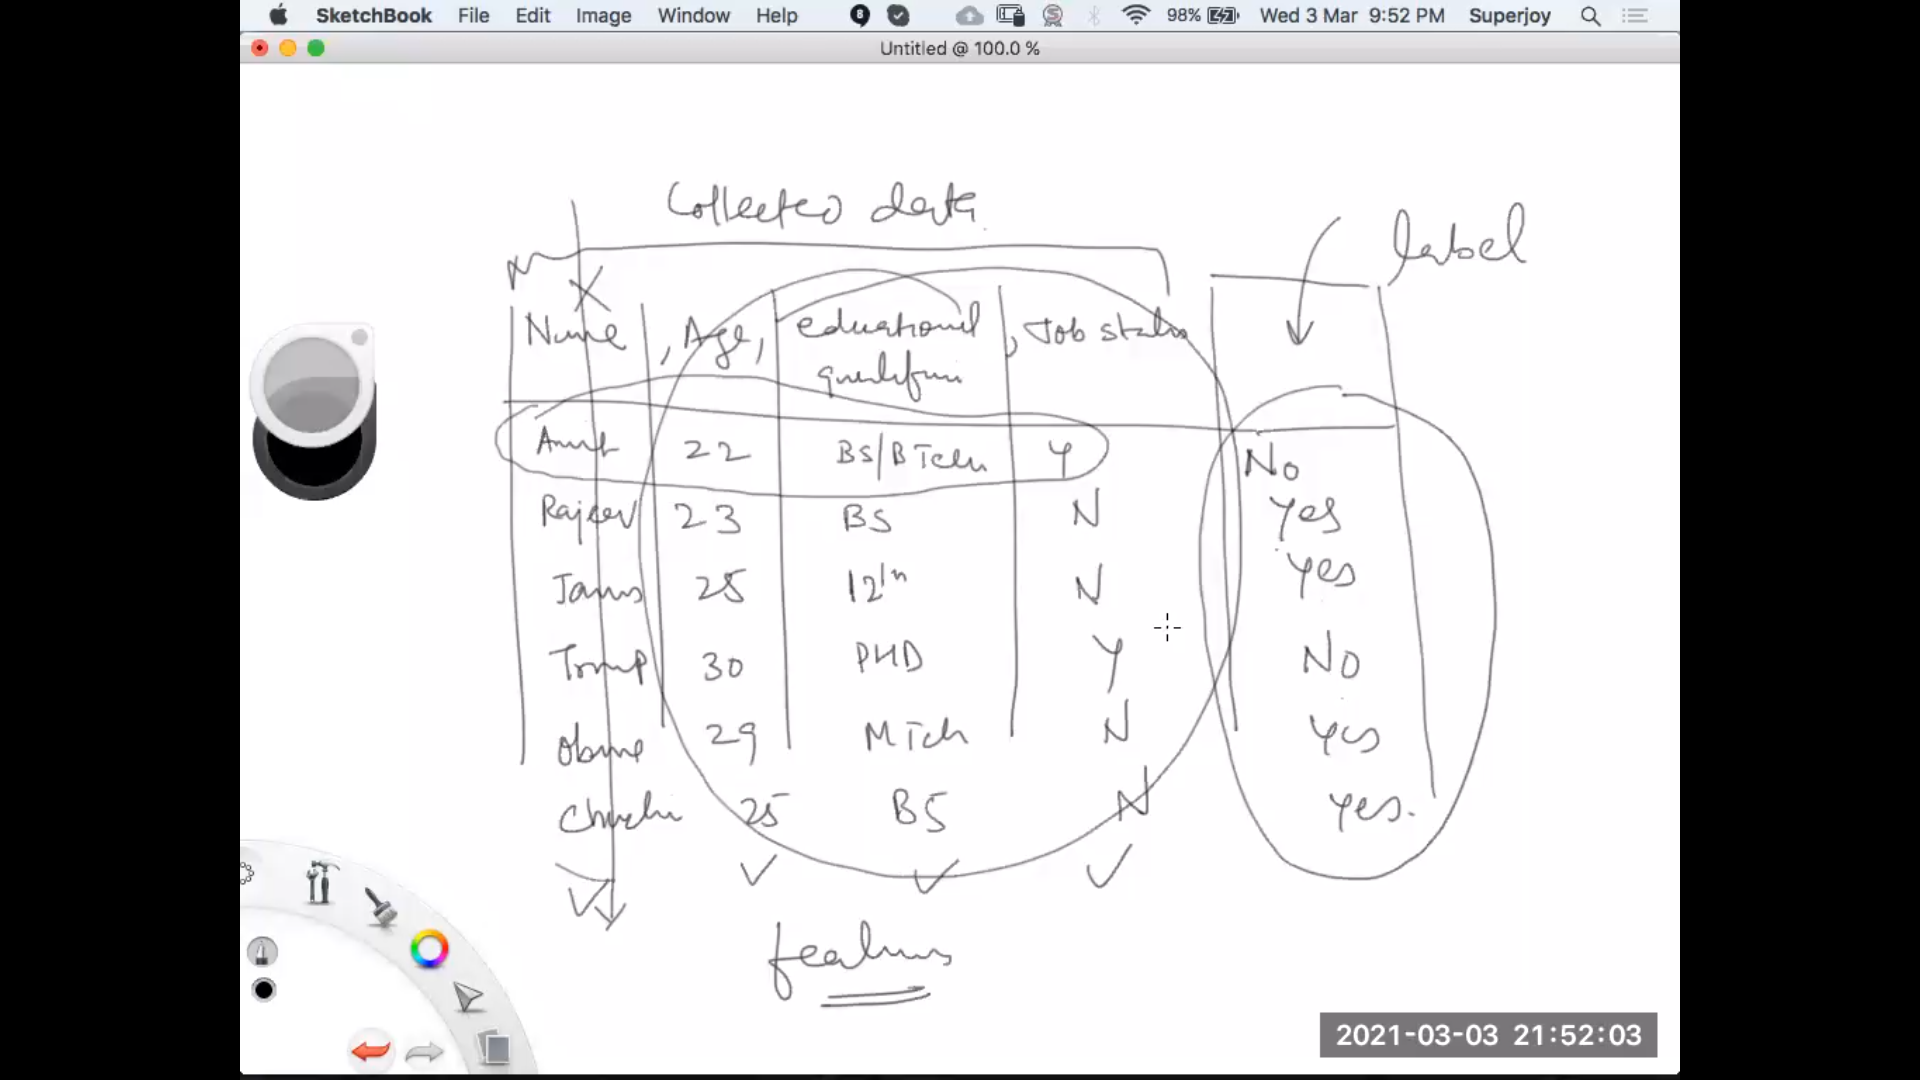 SketchBook File Edit Image Window Help 98% Wed 3 Mar 9:52 PM Superjoy
Untitled @ 100.0 %
Collected data
label
Name , Age, educational , Job status
Amit 22 BS/BTech Y No
Rajeev 23 BS N Yes
James 25 12th N Yes
Trump 30 PHD Y No
Obama 29 MTech N Yes
25 BS N Yes.
features
2021-03-03 21:52:03